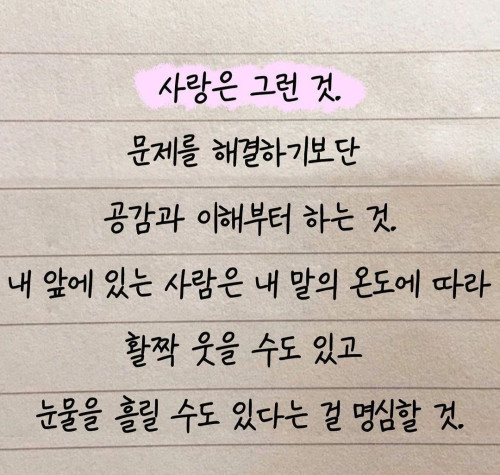 사랑은 그런 것.
문제를 해결하기보단
공감과 이해부터 하는 것.
내 앞에 있는 사람은 내 말의 온도에 따라
활짝 웃을 수도 있고
눈물을 흘릴 수도 있다는 걸 명심할 것.